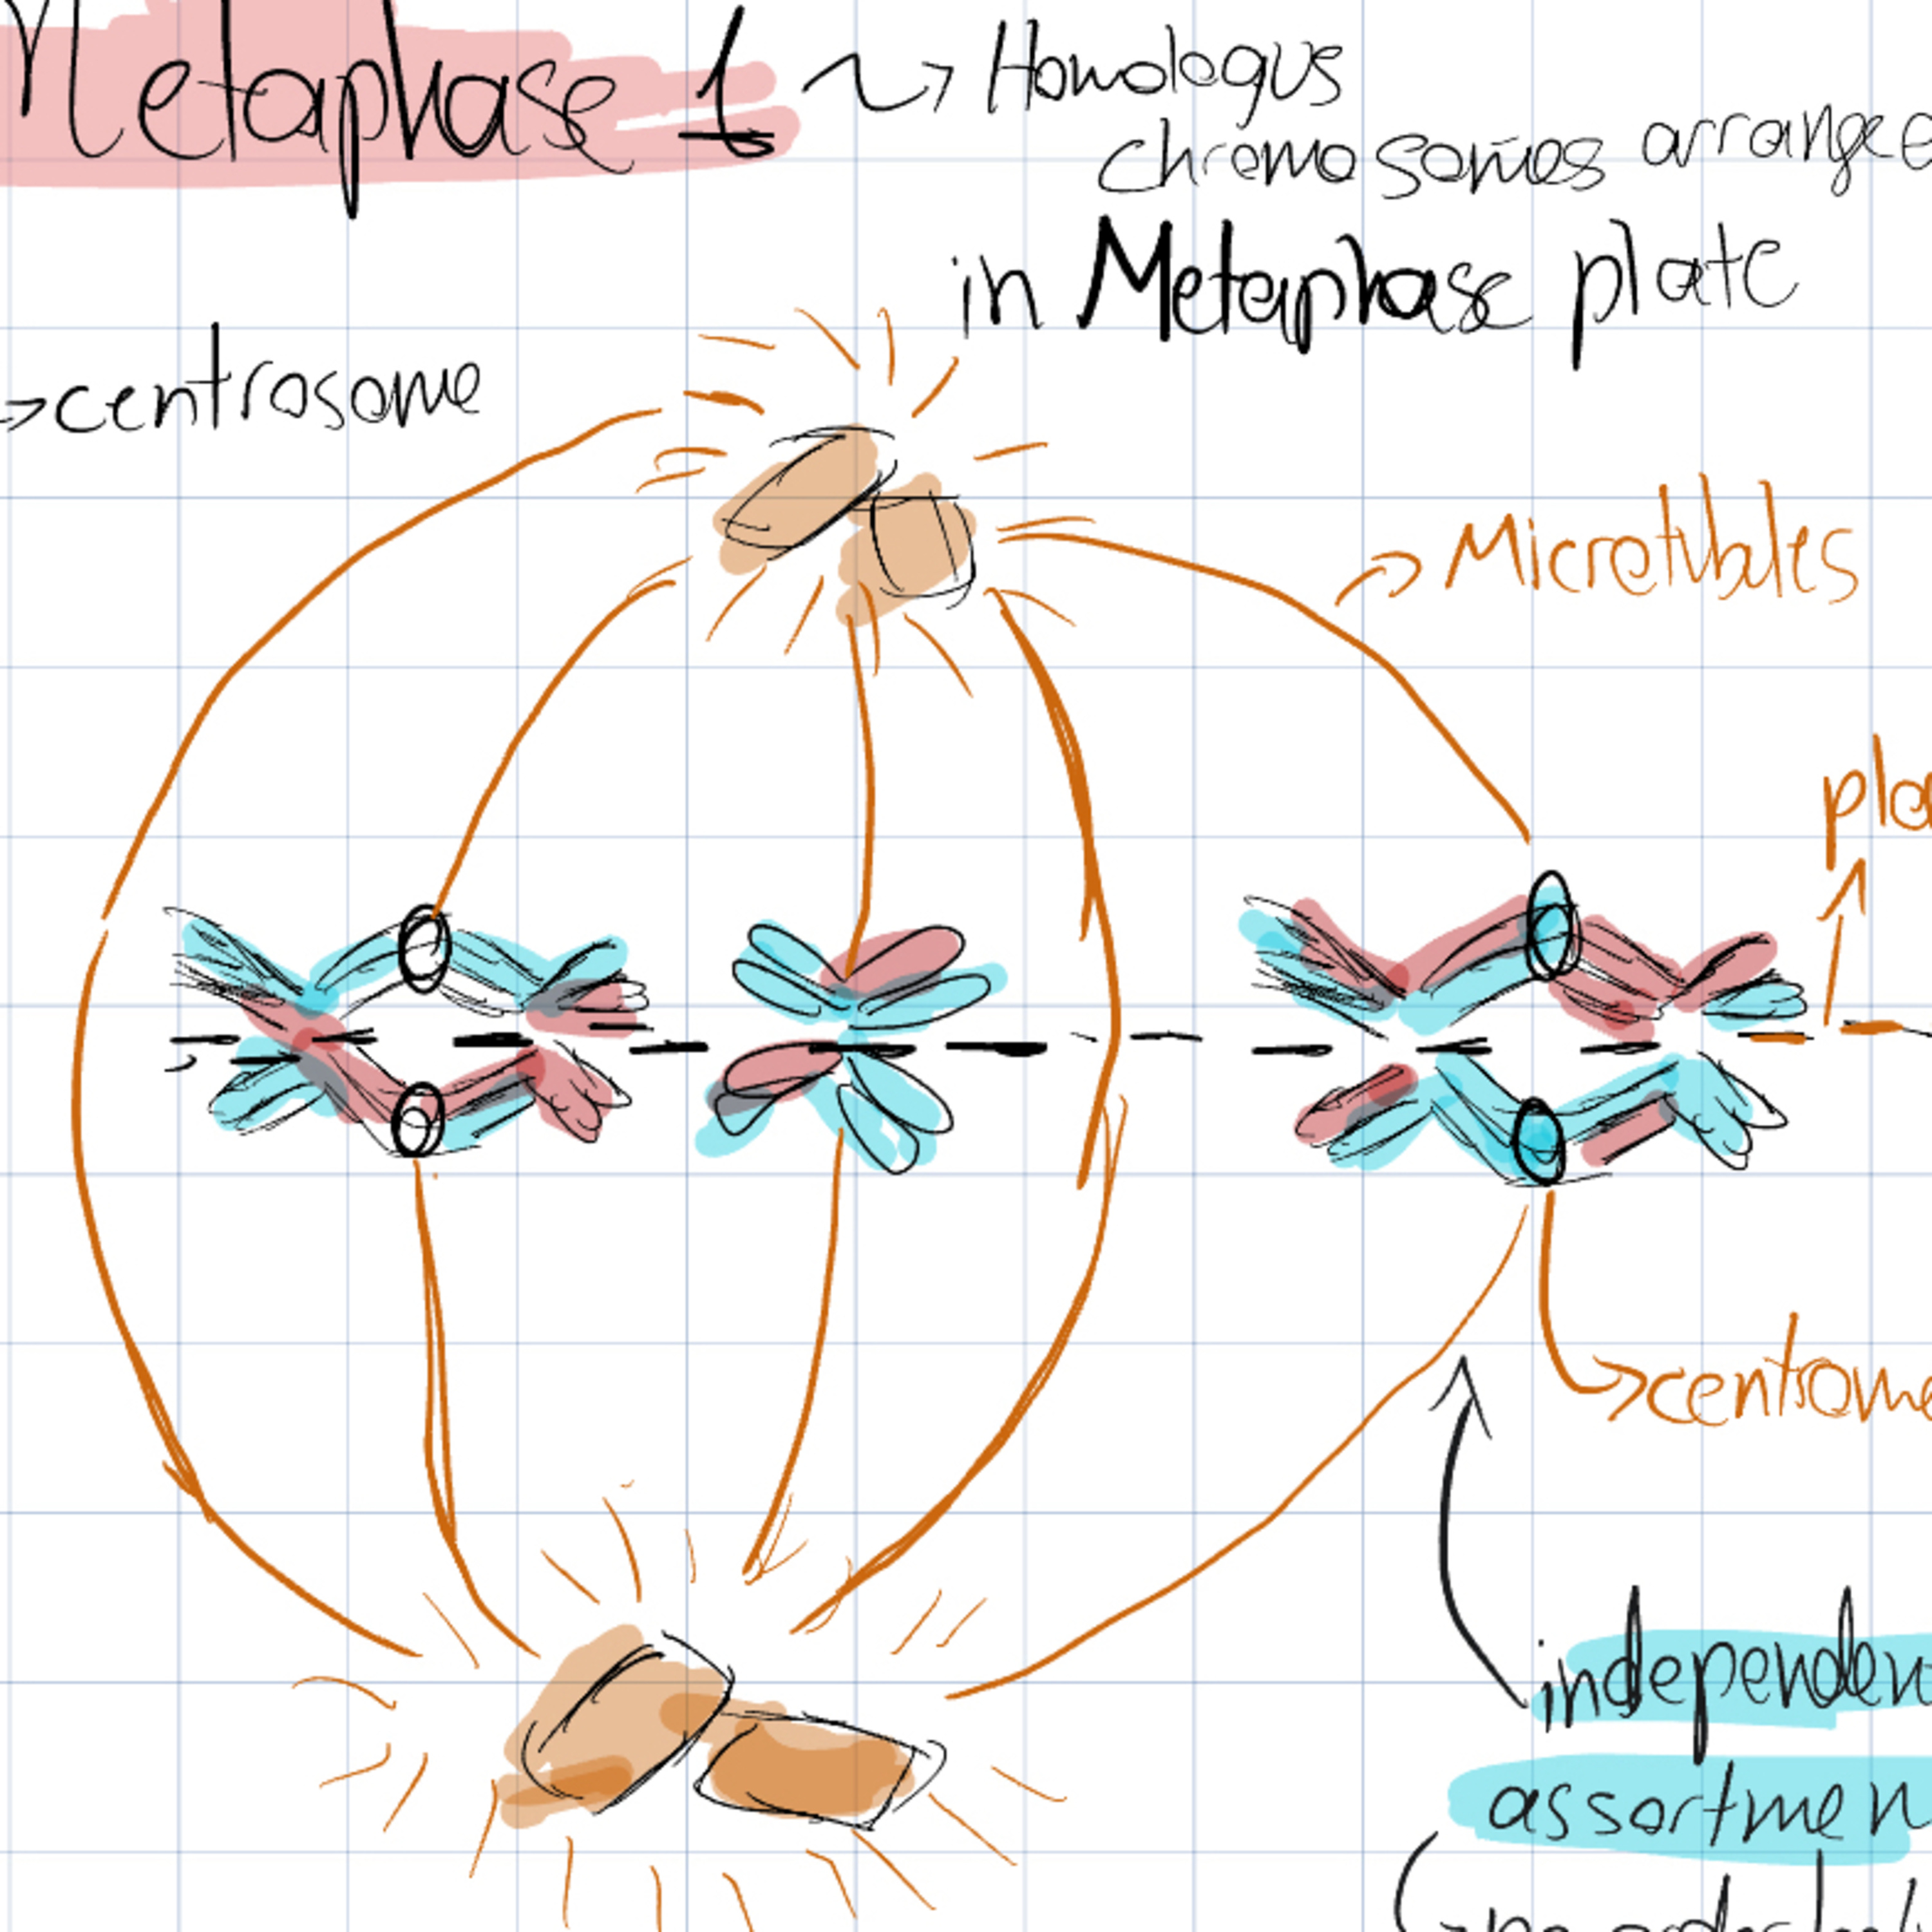 Metaphase 1 ~> Homologus
chromosomes arranged
in Metaphase plate
->centrosome
Microtubules
pla
->centrome
independen
assortmen